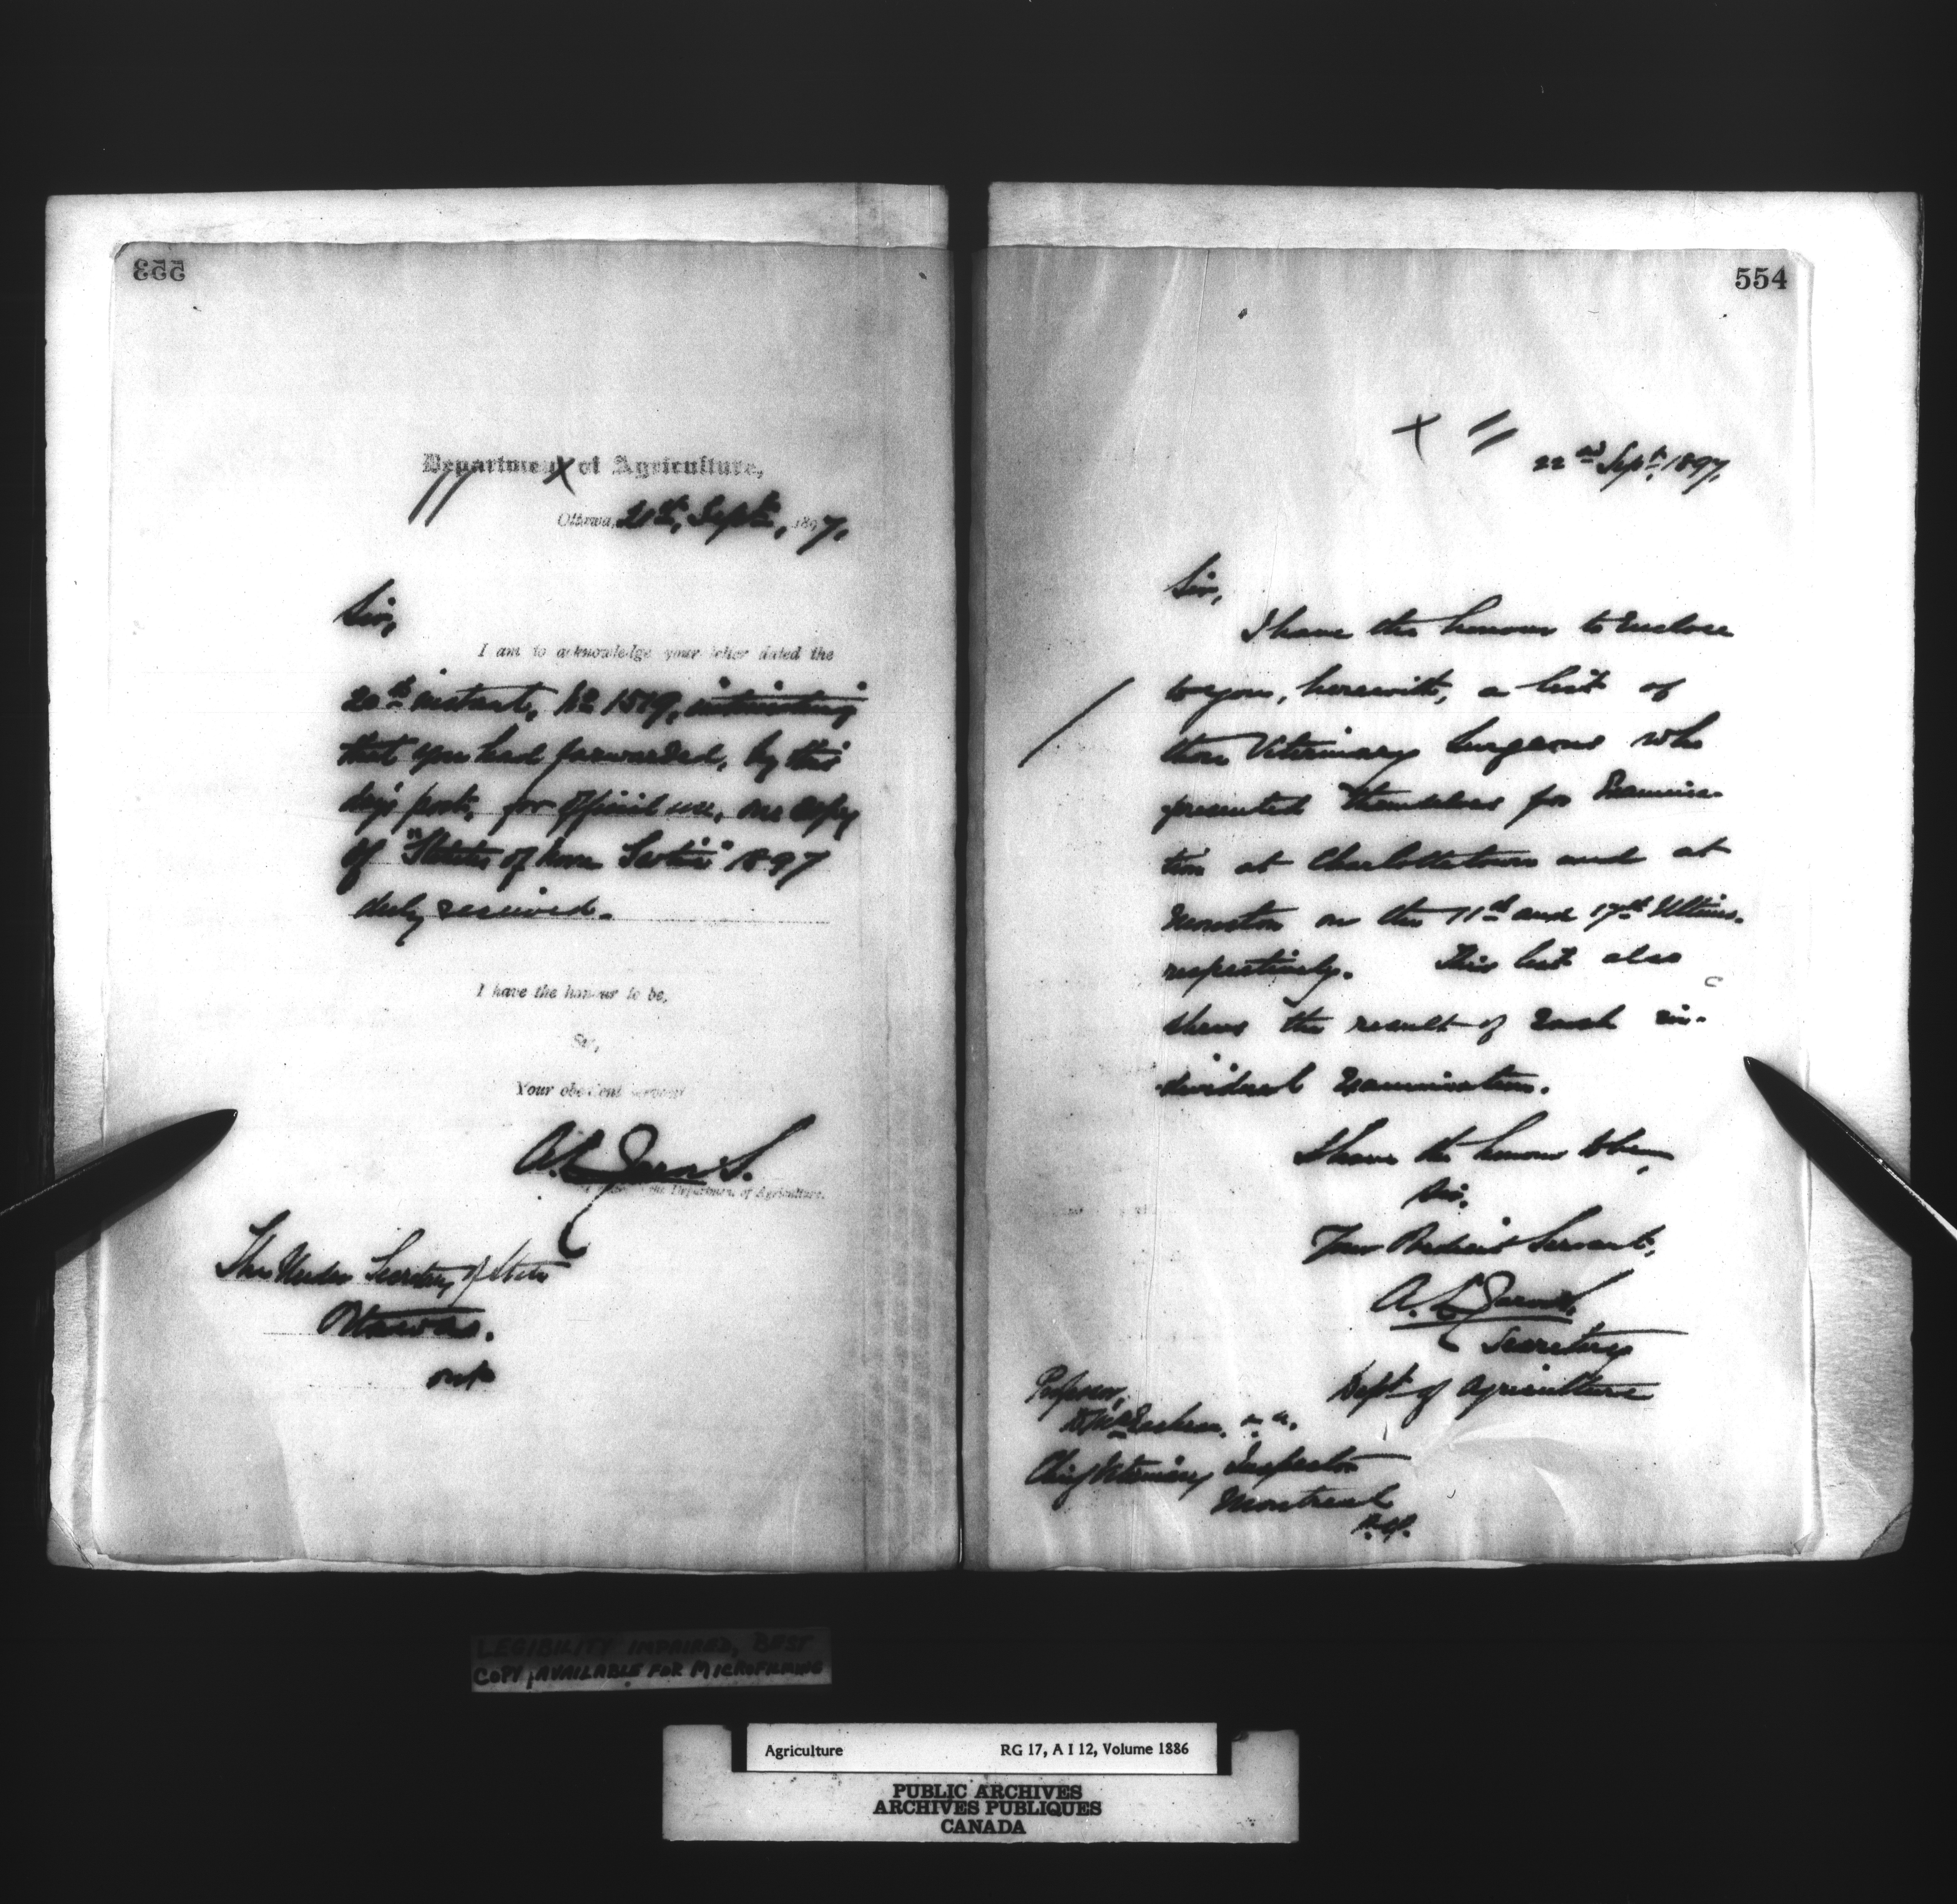 553
Department of Agriculture,
Ottawa, 21st, Septr., 1897.
Sir,
I am to acknowledge your letter dated the
20th instant, No 1519, intimating
that you had forwarded, by this
day's post, for official use, one copy
of "Statutes of Nova Scotia" 1897
duly received.
I have the honour to be,
Sir,
Your obedient servant
A. L. Jarvis.
the Department of Agriculture.
The Under Secretary of State
Ottawa.
554
22nd Sept. 1897.
Sir,
I have the honour to enclose
to you, herewith, a list of
those Veterinary Surgeons who
presented themselves for Examina-
tion at Charlottetown and at
Moncton on the 11th and 17th Ultimo.
respectively. This list also
shews the result of each in-
dividual examination.
I have the honour to be,
Sir,
Your Obedient Servant,
A. L. Jarvis
Secretary
Dept of Agriculture
Professor,
D. McEachran,
Chief Veterinary Inspector
Montreal
P.Q.
LEGIBILITY IMPAIRED, BEST
COPY AVAILABLE FOR MICROFILMING
Agriculture RG 17, A I 12, Volume 1886
PUBLIC ARCHIVES
ARCHIVES PUBLIQUES
CANADA